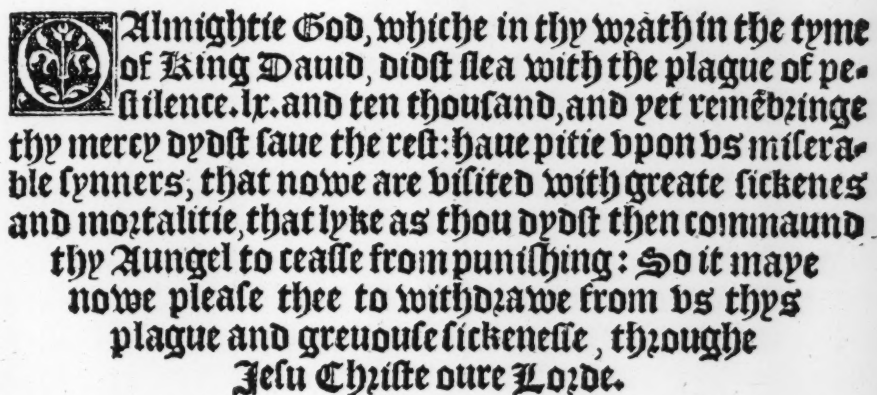 O Almightie God, whiche in thy wrath in the tyme
of King Dauid, didſt ſlea with the plague of pe-
ſtilence. lx. and ten thouſand, and yet remẽbringe
thy mercy dydſt ſaue the reſt: haue pitie vpon vs miſera-
ble ſynners, that nowe are viſited with greate ſickenes
and mortalitie, that lyke as thou dydſt then commaund
thy Aungel to ceaſſe from puniſhing: So it maye
nowe pleaſe thee to withdrawe from vs thys
plague and greuouſe ſickeneſſe, throughe
Jeſu Chriſte oure Lorde.